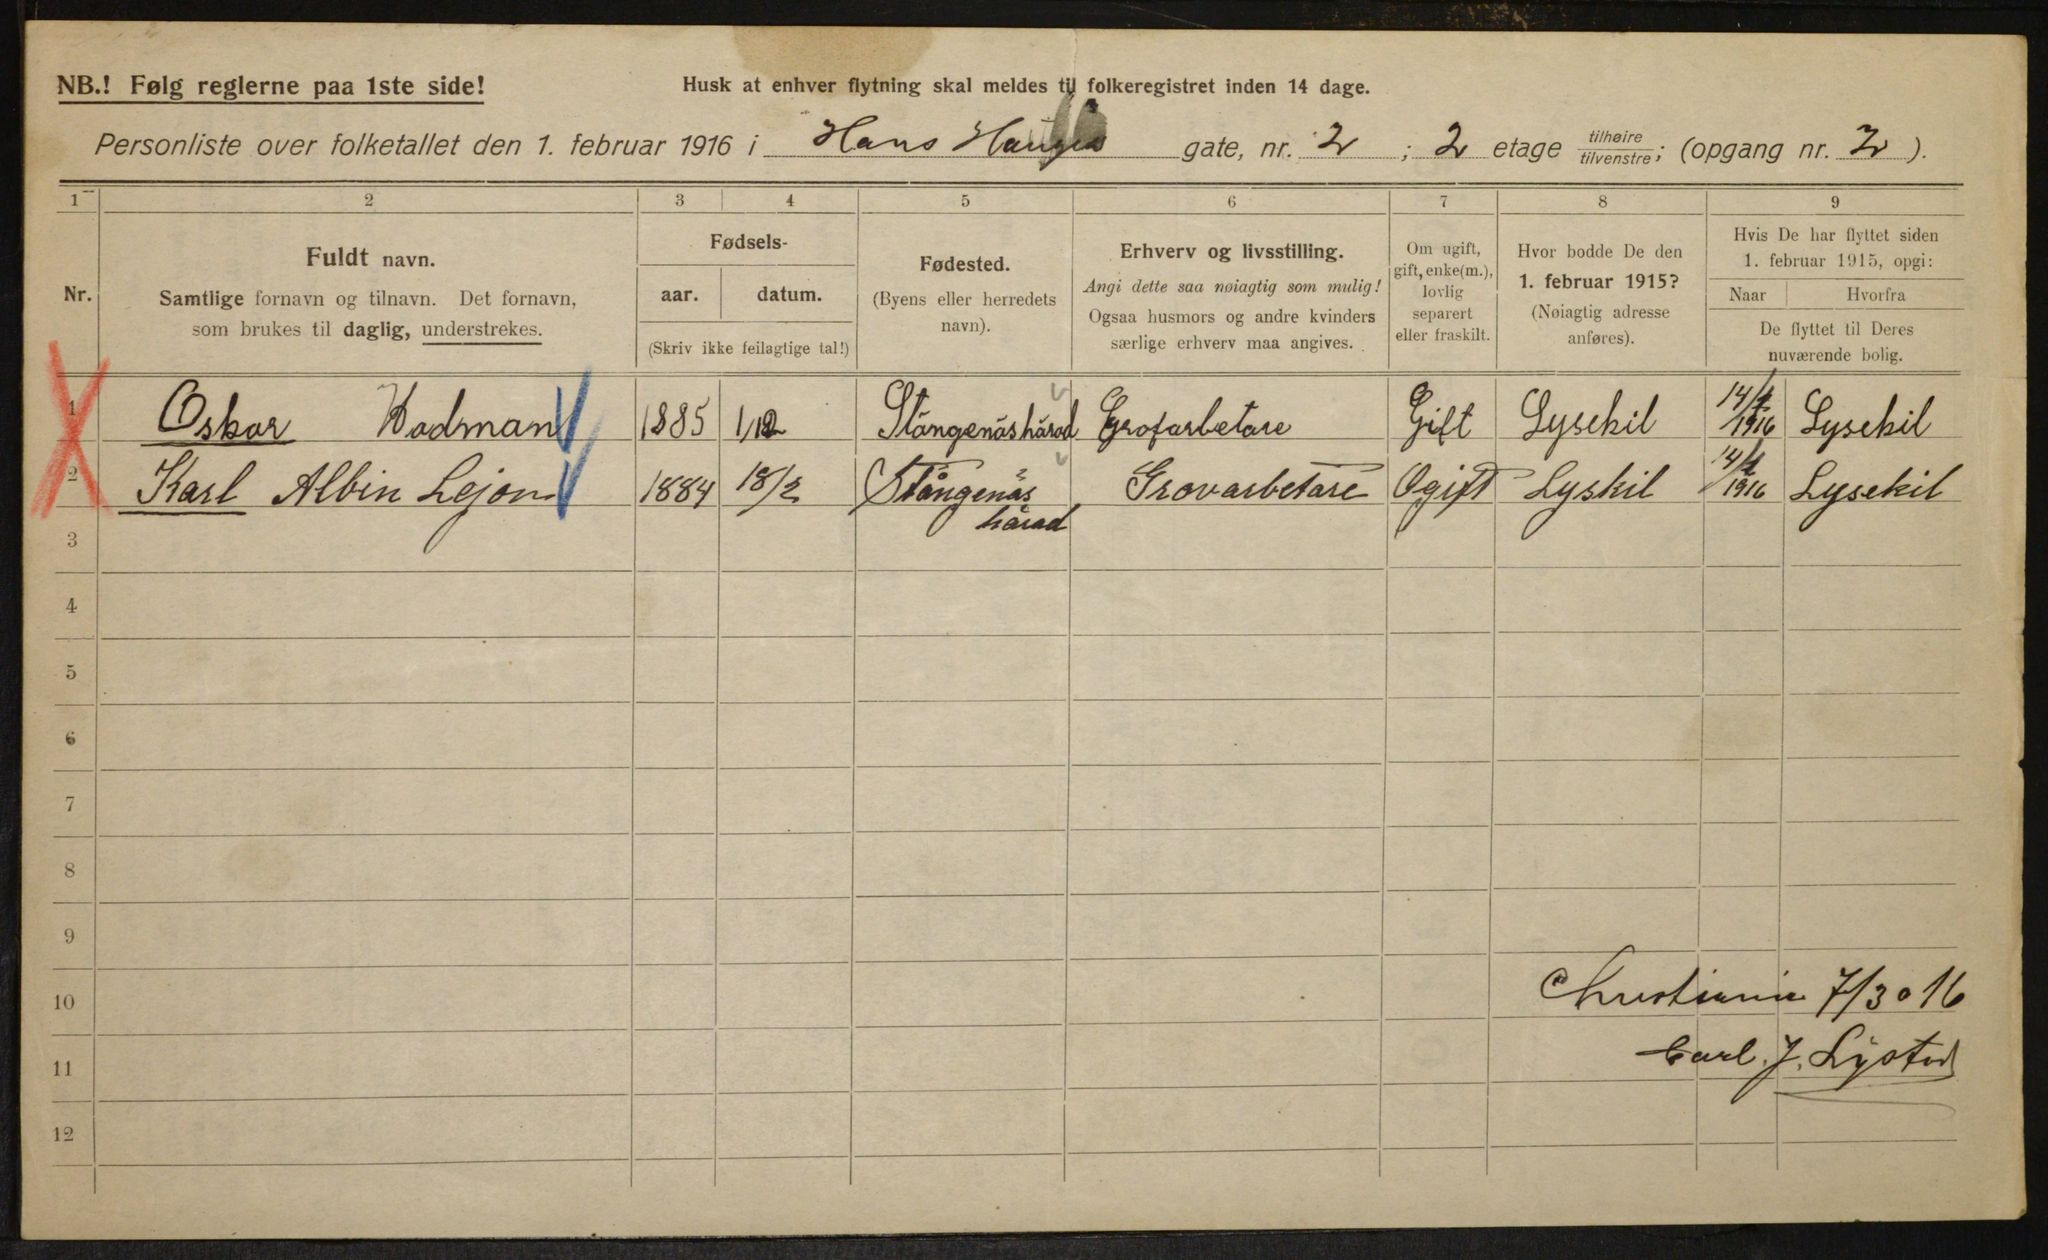 NB.! Følg reglerne paa 1ste side! Husk at enhver flytning skal meldes til folkeregistret inden 14 dage.
Personliste over folketallet den 1. februar 1916 i Hans Hauges gate, nr. 2; 2 etage tilhøire/tilvenstre; (opgang nr. 2).
1 2 3 4 5 6 7 8 9
Nr.
Fuldt navn.
Samtlige fornavn og tilnavn. Det fornavn,
som brukes til daglig, understrekes.
Fødsels-
aar. datum.
(Skriv ikke feilagtige tal!)
Fødested.
(Byens eller herredets
navn).
Erhverv og livsstilling.
Angi dette saa nøiagtig som mulig!
Ogsaa husmors og andre kvinders
særlige erhverv maa angives.
Om ugift,
gift, enke(m.),
lovlig
separert
eller fraskilt.
Hvor bodde De den
1. februar 1915?
(Nøiagtig adresse
anføres).
Hvis De har flyttet siden
1. februar 1915, opgi:
Naar Hvorfra
De flyttet til Deres
nuværende bolig.
1 Oskar 1885 1/12 Stångenäshärad Grofarbetare Gift Lysekil 1916 Lysekil
2 Karl Albin Lejon 1884 18/2 Stångenäs Grovarbetare Ogift Lyskil 1916 Lysekil
härad
3
4
5
6
7
8
9
10 Christiania 7/3 16
11 Carl. J. Lystad
12